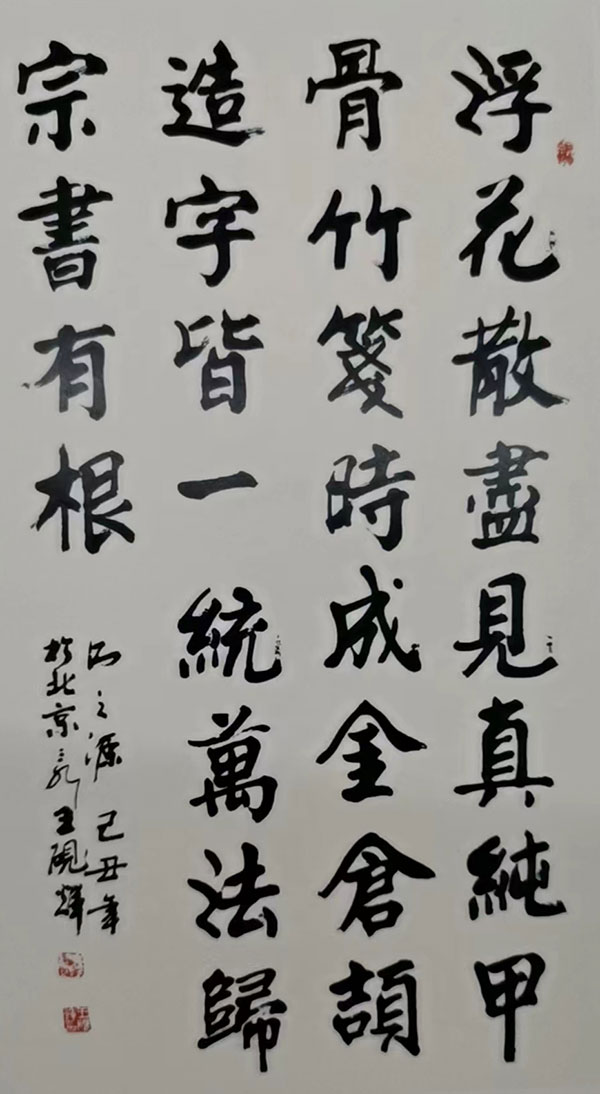 浮花散盡見真純甲
骨竹箋時成金倉頡
造字皆一統萬法歸
宗書有根
之源己丑年
於北京王硯輝